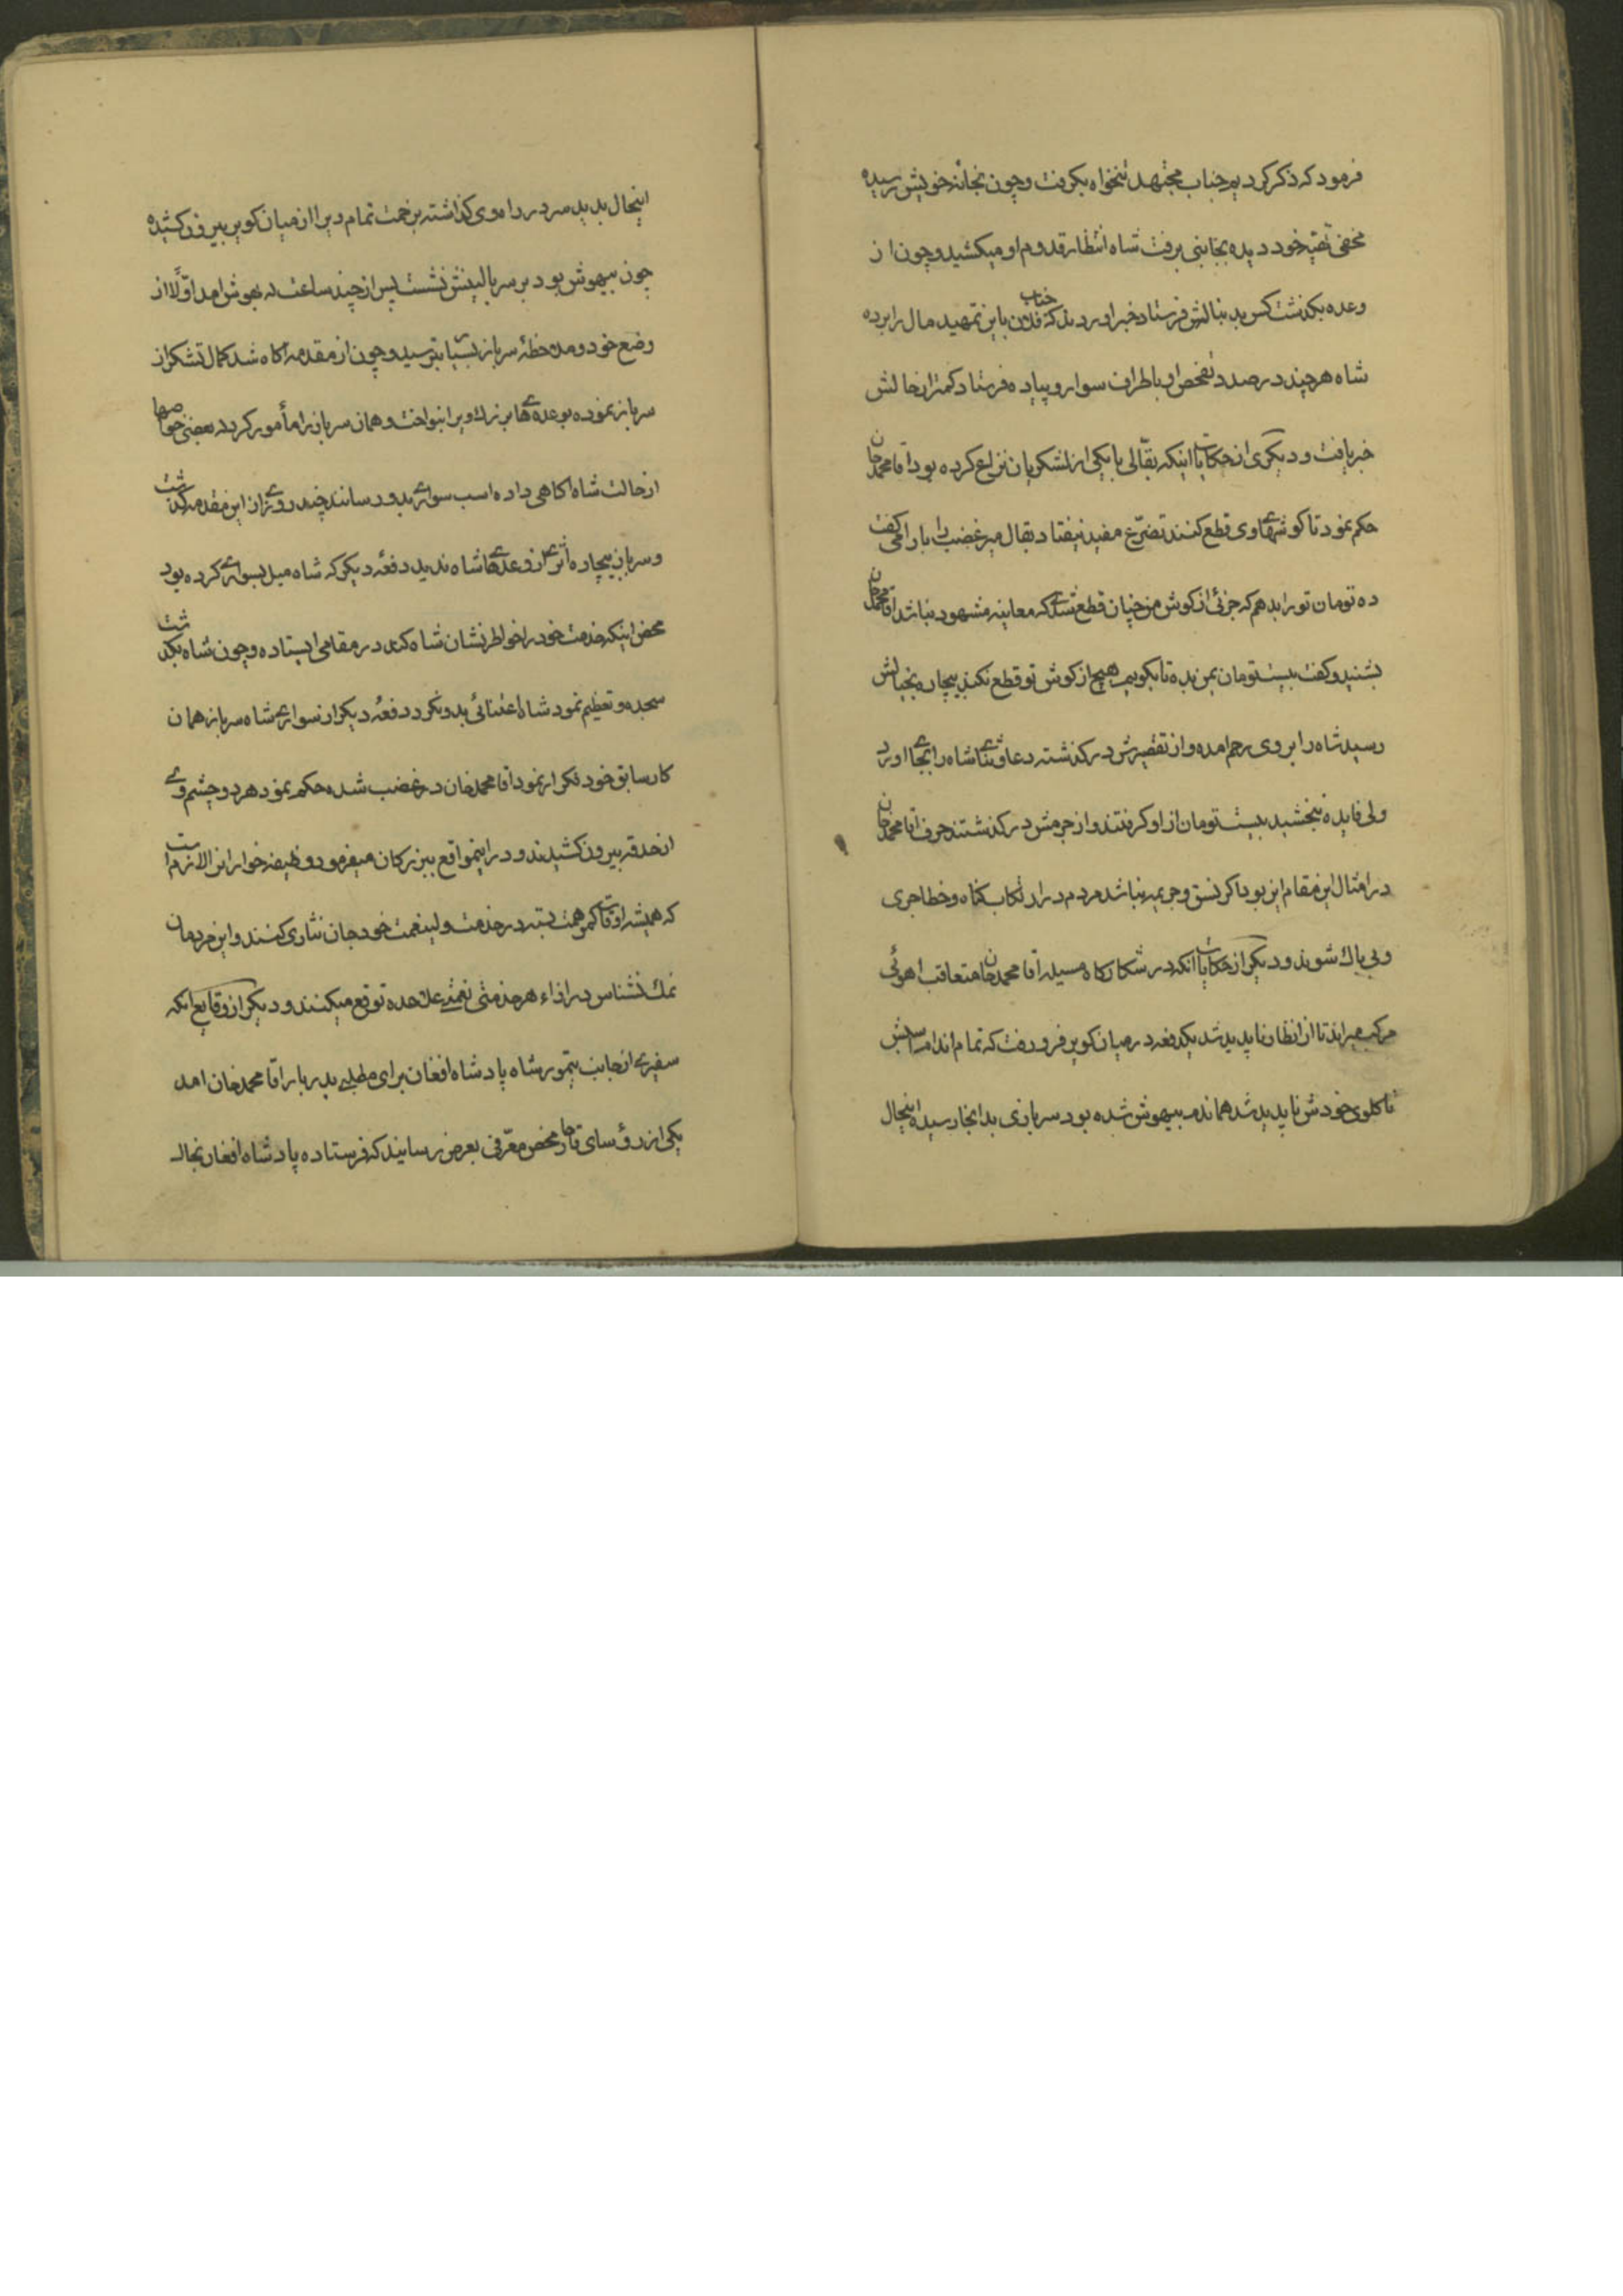 فرمود که ذکر کردیم جناب مجتهد تنخواه بکرفت و چون بخانه خویش رسیده
مخفی تهیّه خود دیده بجانبی برفت شاه انتظار قدوم او میکشید و چون از
وعده بکذشت کس بدنبالش فرستاد خبر اوردند که جناب فلان باین تمهید مال را برده
شاه هرچند در صدد تفحص او باطراف سوار و پیاده فرستاد کمتر از حالش
خبر یافت و دیکری از حکایات اینکه بقّالی با یکی از لشکریان نزاع کرده بود اقا محمد خان
حکم نمود تا کوشهای وی قطع کنند تضرّع مفید نیفتاد بقال میرغضب را بارامی کفت
ده تومان تو را بدهم که جزئی از کوش من چنان قطع شود که معاینه مشهود نباشد اقا محمد خان
بشنید و کفت بیست تومان بمن بده تا بکویم هیچ از کوش تو قطع نکنند بیچاره بخیالش
رسید شاه را بر وی رحم امده و از تقصیرش درکذشته دعا و ثنای شاه را بجا اورد
ولی فایده نبخشید بیست تومان از او کرفتند و از جرمش درکذشتند حرف اقا محمد خان
در امثال این مقام این بود اکر نسق و جریمه نباشد مردم در ارتکاب کناه و خطا جری
و بی باک شوند و دیکر از حکایات انکه در شکارکاه مسیله اقا محمد خان متعاقب اهوئی
مرکب میراند تا از انظار ناپدید شد یکدفعه در میان کویر فرو رفت که تمام اندام اسبش
تا کلوی خودش ناپدید شد همانند بیهوش شده بود سربازی بدانجا رسید اینحال
اینحال بدید مرد در راه وی کذاشته بزحمت تمام ویرا از میان کویر بیرون کشیده
چون بیهوش بود بر سر بالینش نشست پس از چند ساعت که بهوش امد اوّلا از
وضع خود و ملاحظهٔ سرباز بسیار بترسید و چون از مقدمه اکاه شد کمال تشکر از
سرباز نموده بوعده های بزرک ویرا بنواخت و همان سرباز را مأمور کرد که بعضی خواصها
از حالت شاه اکاهی داده اسب سواری بدو رسانند چند روزی از این مقدمه کذشت
و سرباز بیچاره اثری از وعدهای شاه ندید دفعهٔ دیکر که شاه میل بسواری کرده بود
محض اینکه خدمت خود را خواطرنشان شاه کند در مقامی ایستاده و چون شاه بکذشت
سجده و تعظیم نمود شاه اعتنائی بدو نکرد دفعهٔ دیکر از سواری شاه سرباز همان
کار سابق خود تکرار نمود اقا محمد خان در غضب شده حکم نمود هر دو چشم وی
از حدقه بیرون کشیدند و در اینمواقع ببزرکان میفرمود وظیفه خوار این الازم است
که همیشه اوقات کمر همت بسته در خدمت ولینعمت خود جان نثاری کنند و این مردمان
نمک نشناس در ازاء هر خدمتی نعمتی علاحده توقع میکنند و دیکر از وقایع انکه
سفیری از جانب تیمور شاه پادشاه افغان برای مطلبی بدربار اقا محمد خان امد
یکی از رؤسای قاجار محض معرّفی بعرض رسانید که فرستاده پادشاه افغان بخال